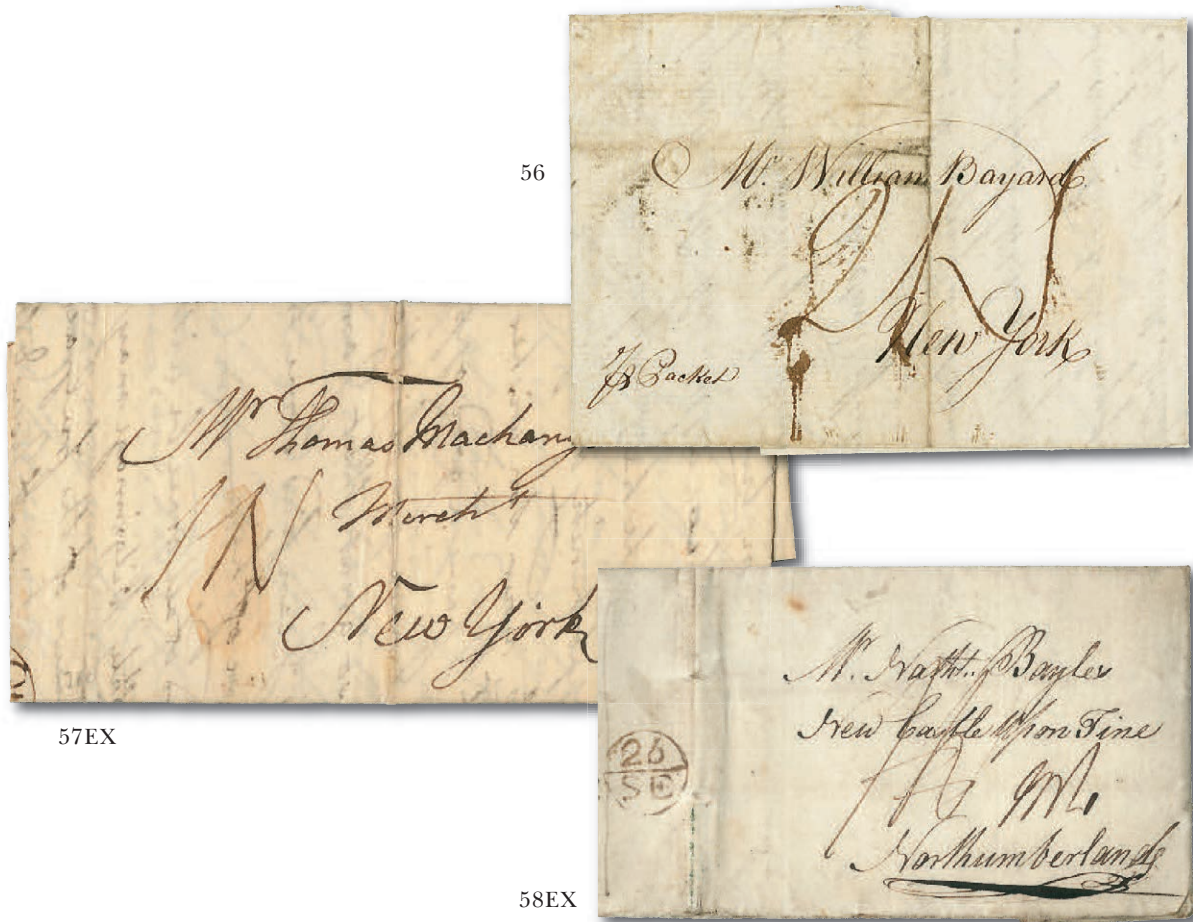 56
Mr. William Bayard
New York
Pr Packet
Mr Thomas Machan
Mercht
1N
New York
57EX
Mr. Natht. Bayles
New Castle Upon Tine
Northumberland
26
SE
58EX